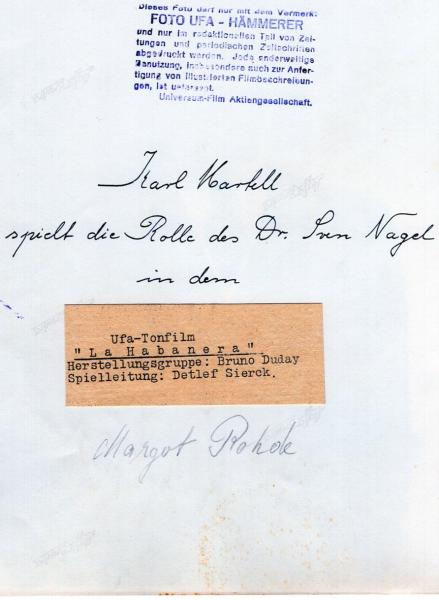 Dieses Foto darf nur mit dem Vermerk:
FOTO UFA - HÄMMERER
und nur im redaktionellen Teil von Zei-
tungen und periodischen Zeitschriften
abgedruckt werden. Jede anderweitige
Benutzung, insbesondere auch zur Anfer-
tigung von illustrierten Filmbeschreibun-
gen, ist untersagt.
Universum-Film Aktiengesellschaft.
Karl Martell
spielt die Rolle des Dr. Sven Nagel
in dem
Ufa-Tonfilm
"La Habanera"
Herstellungsgruppe: Bruno Duday
Spielleitung: Detlef Sierck.
Margot Rohde